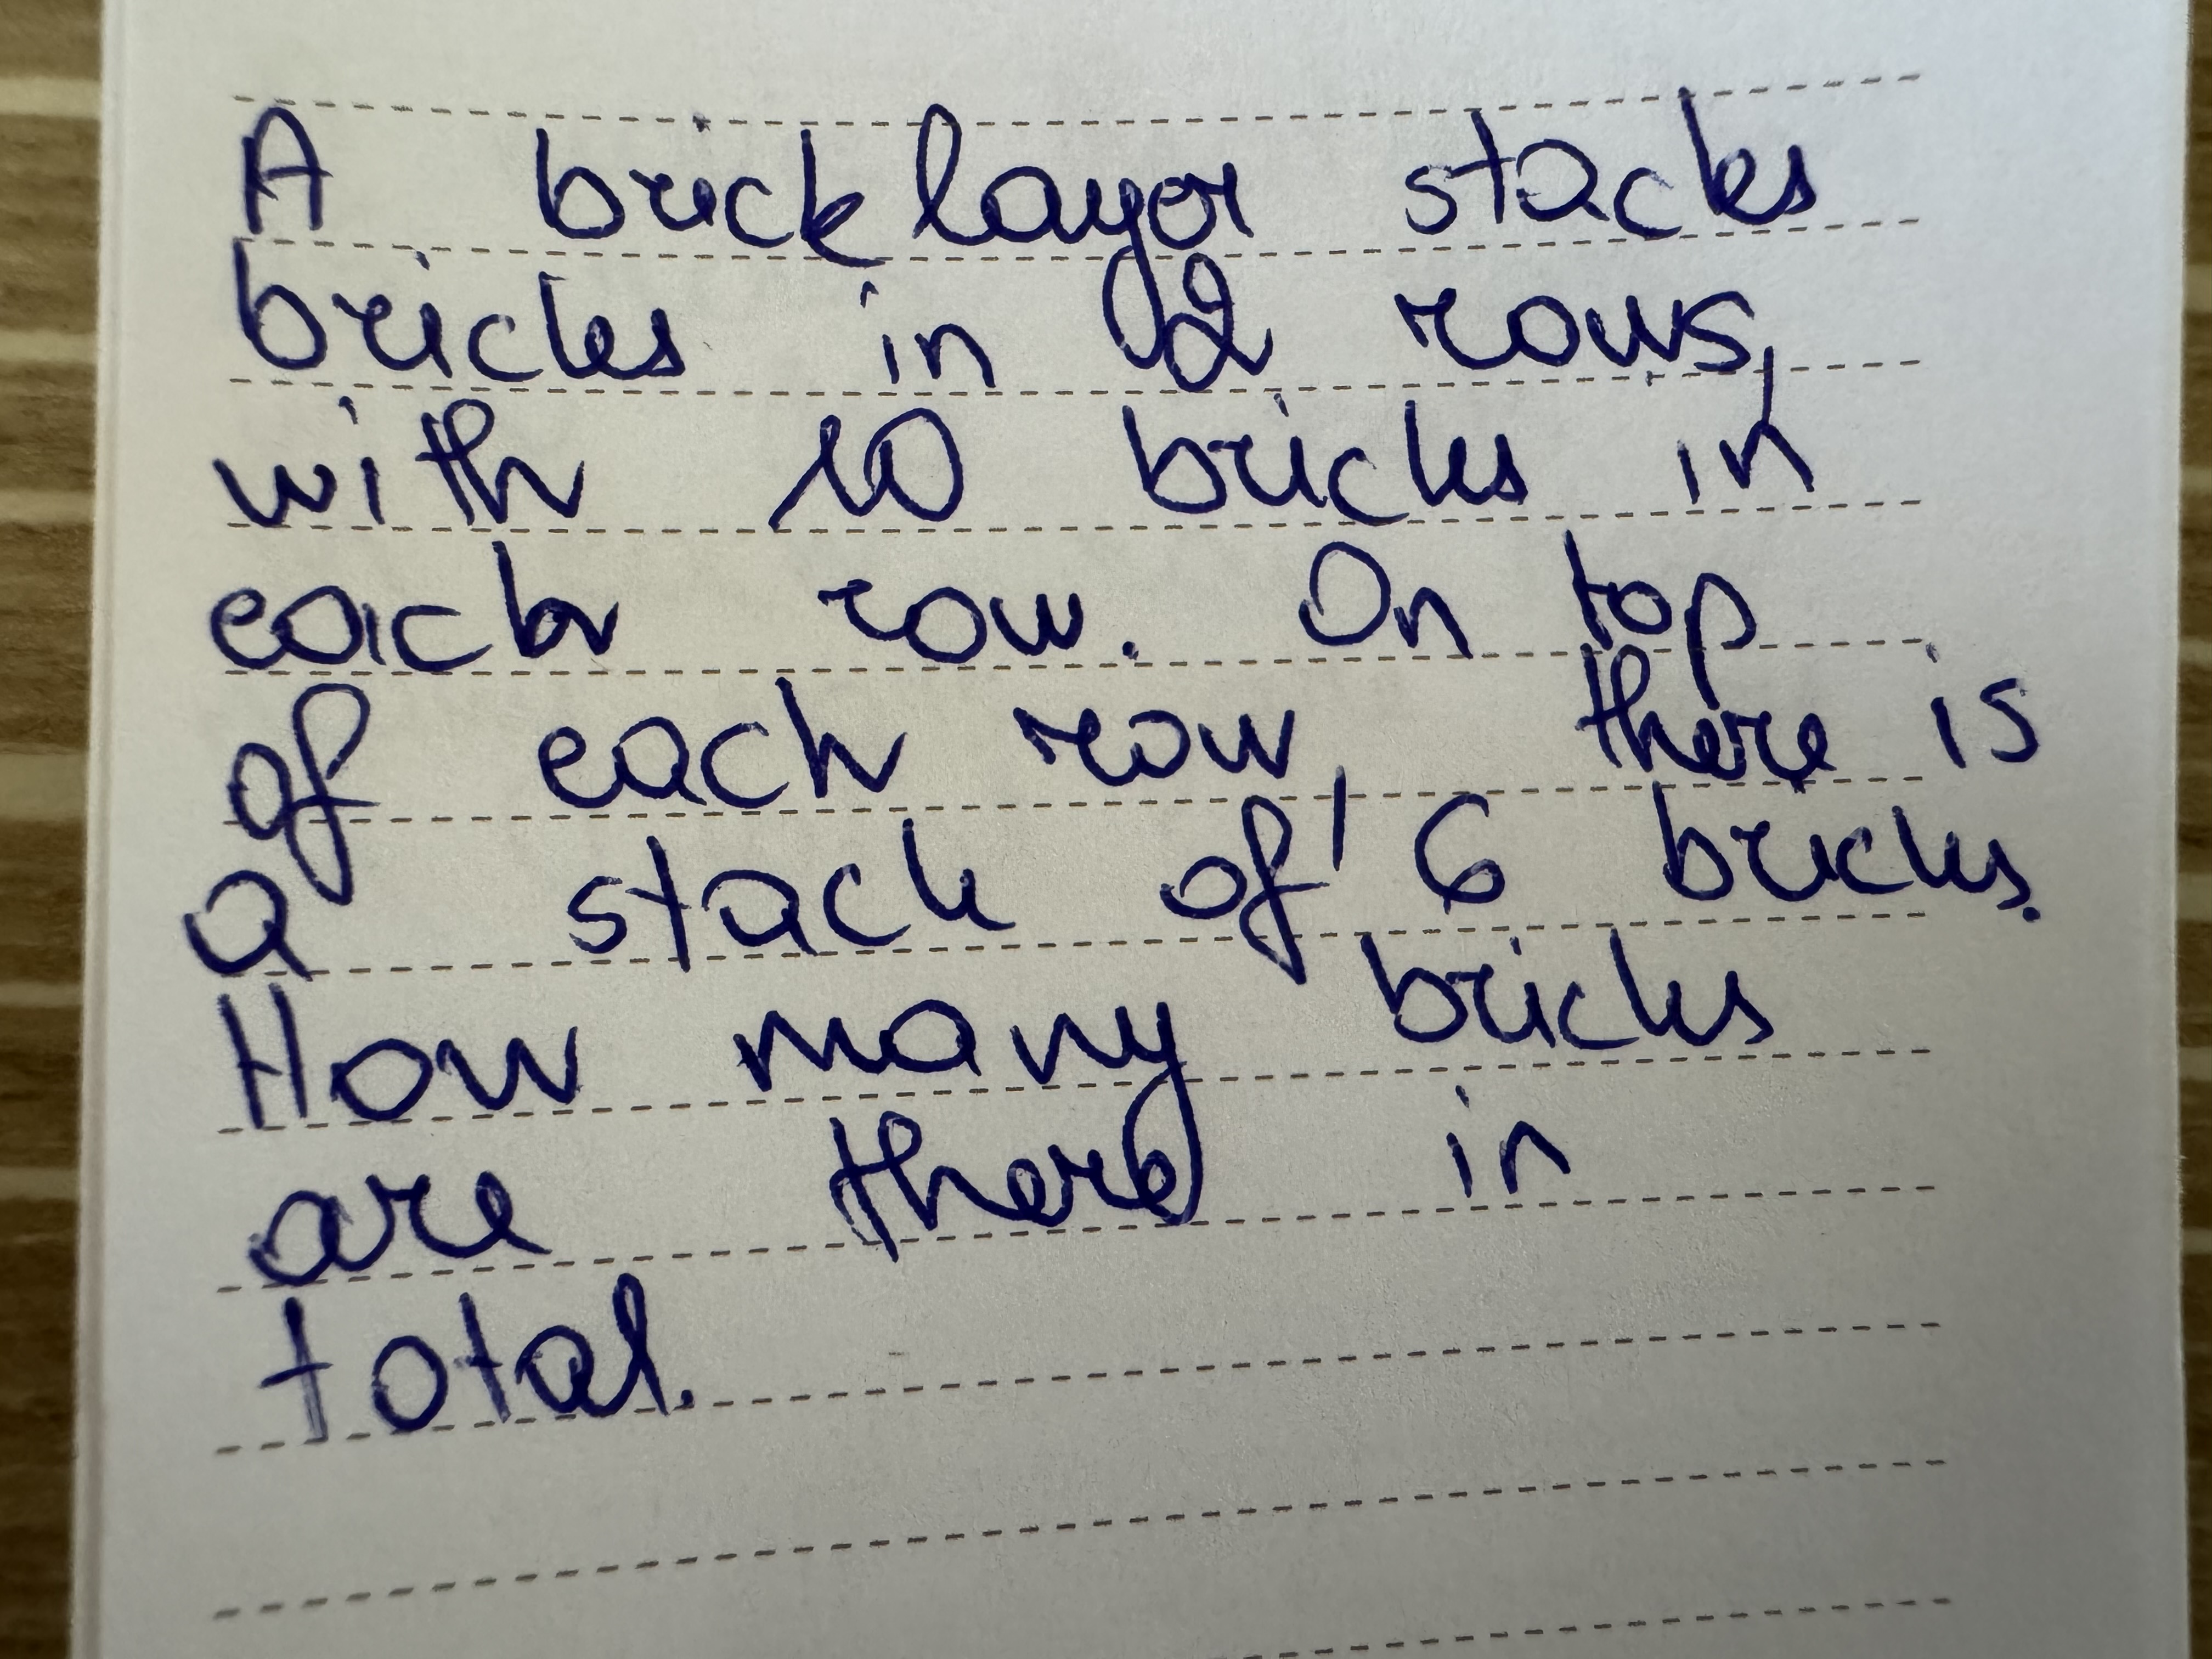 A bricklayer stacks
bricks in 2 rows,
with 10 bricks in
each row. On top
of each row, there is
a stack of 6 bricks.
How many bricks
are there in
total.